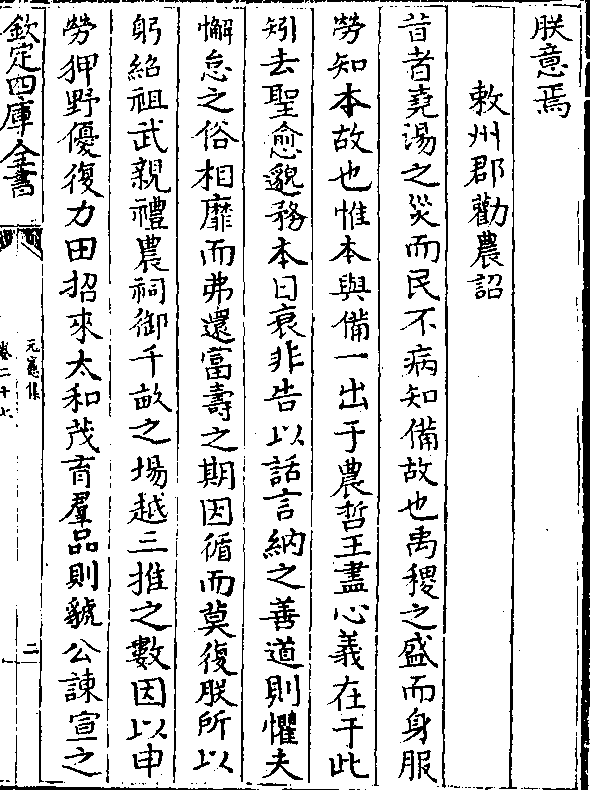 朕意焉
敕州郡勸農詔
昔者堯湯之災而民不病知備故也禹稷之盛而身服
勞知本故也惟本與備一出于農哲王盡心義在于此
矧去聖愈邈務本日衰非告以話言納之善道則懼夫
懈怠之俗相靡而弗還富壽之期因循而莫復朕所以
躬紹祖武親禮農祠御千畝之場越三推之數因以申
勞狎野優復力田招來太和茂育羣品則虢公諫宣之
欽定四庫全書
元憲集
卷二十七
二